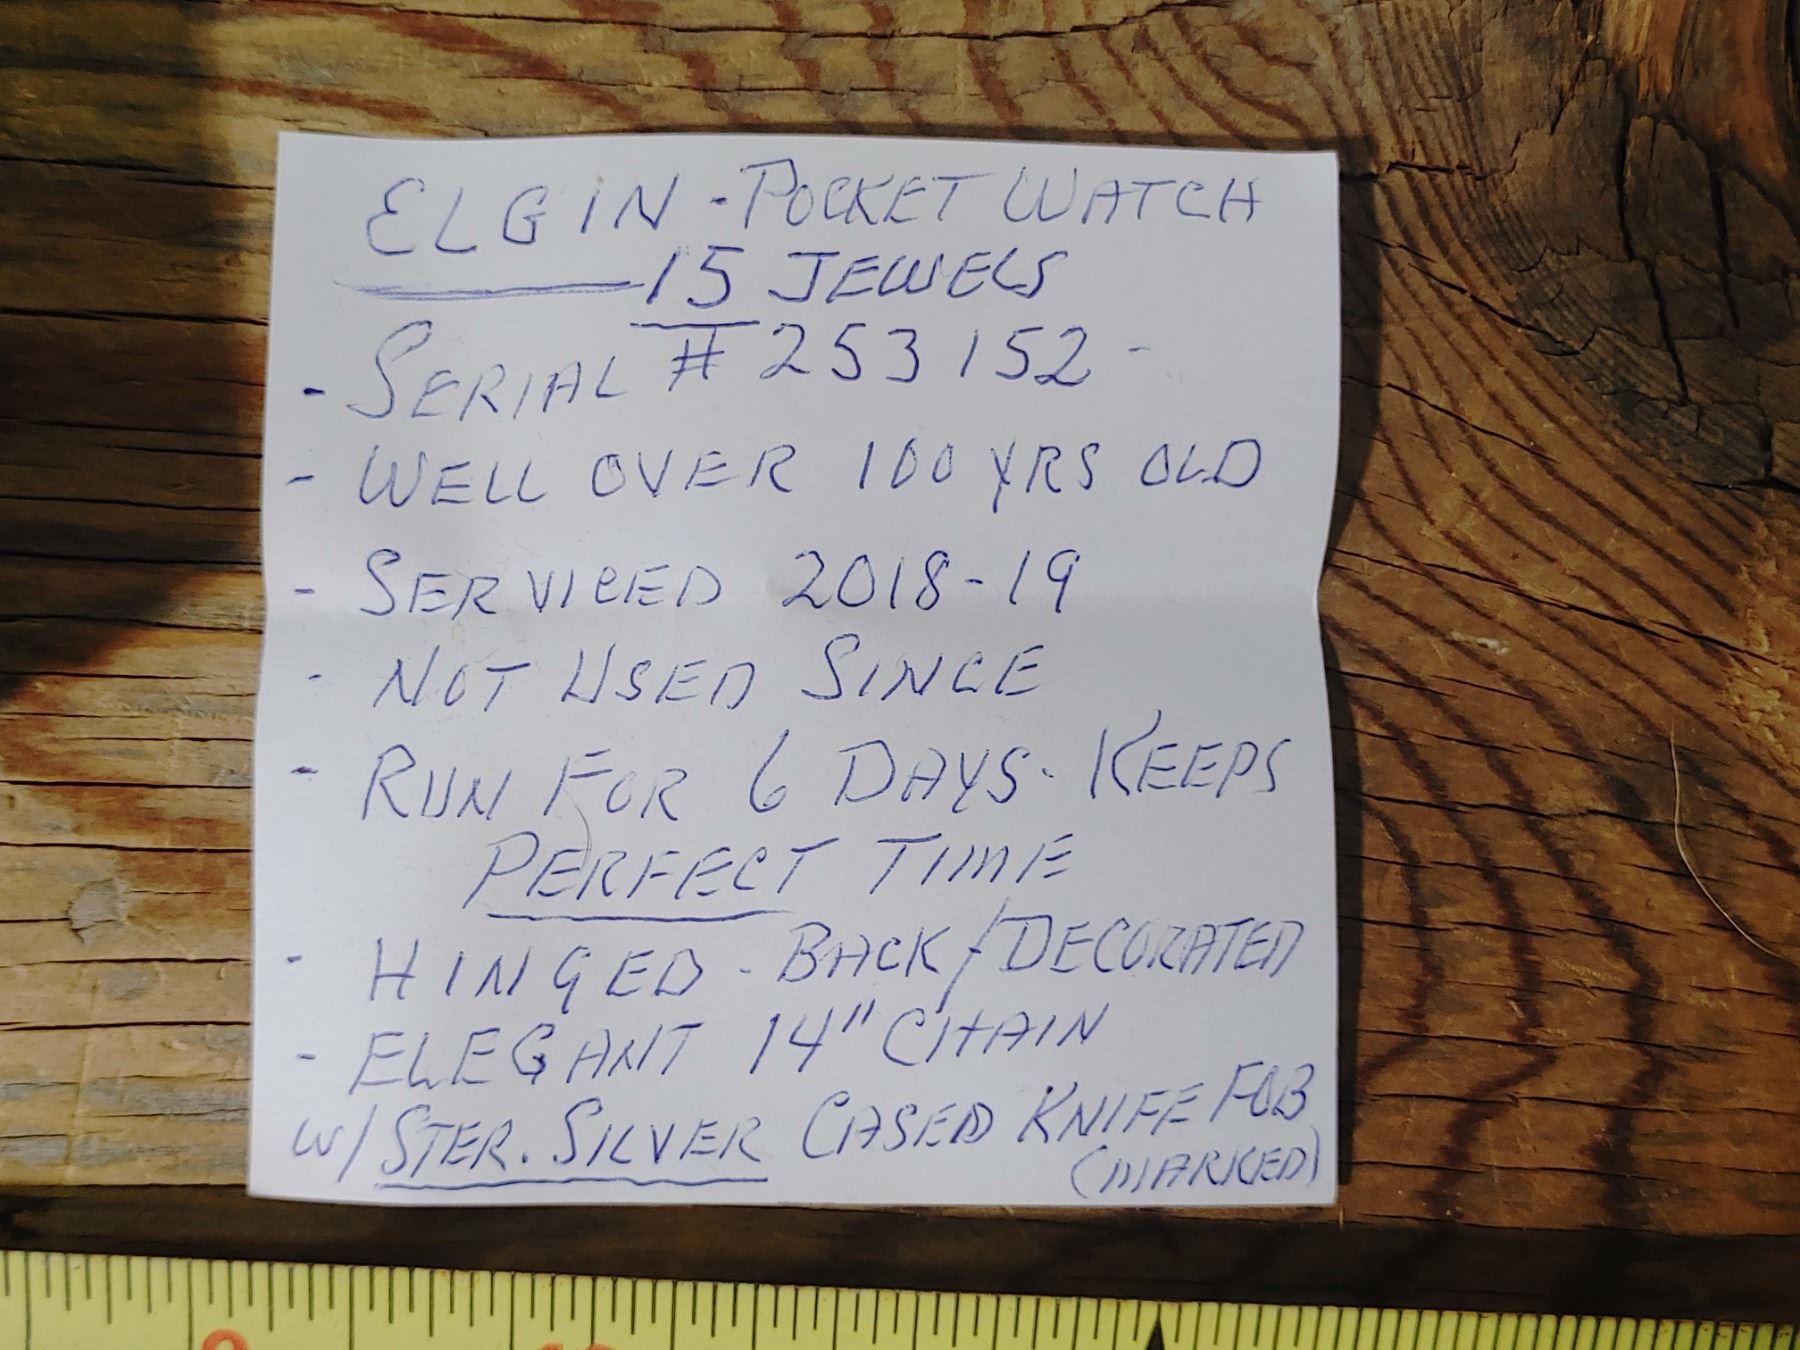 ELGIN - POCKET WATCH
15 JEWELS
- SERIAL # 253152 -
- WELL OVER 100 YRS OLD
- SERVICED 2018-19
- NOT USED SINCE
- RUN FOR 6 DAYS - KEEPS
PERFECT TIME
- HINGED - BACK / DECORATED
- ELEGANT 14" CHAIN
W/ STER. SILVER CASED KNIFE FOB
(MARKED)